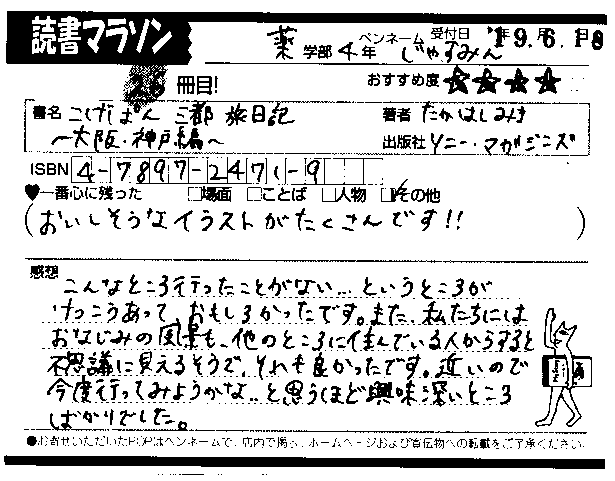 読書マラソン
薬 学部 4 年 ペンネーム じゃすみん 受付日 19.6.18
冊目!
おすすめ度 ★★★★☆
書名 こげぱん 三都 旅日記
~大阪・神戸編~
著者 たかはしみき
出版社 ソニー・マガジンズ
ISBN 4-7897-2471-9
♥一番心に残った □場面 □ことば □人物 ☑その他
(おいしそうなイラストがたくさんです!!)
感想
こんなところ行ったことがない…というところが
けっこうあって、おもしろかったです。また、私たちには
おなじみの風景も、他のところに住んでいる人からすると
不思議に見えるそうで、それも良かったです。近いので
今度行ってみようかな…と思うほど興味深いところ
ばかりでした。
●お寄せいただいたPOPはペンネームで、店内で掲示、ホームページおよび宣伝物への転載をご了承ください。